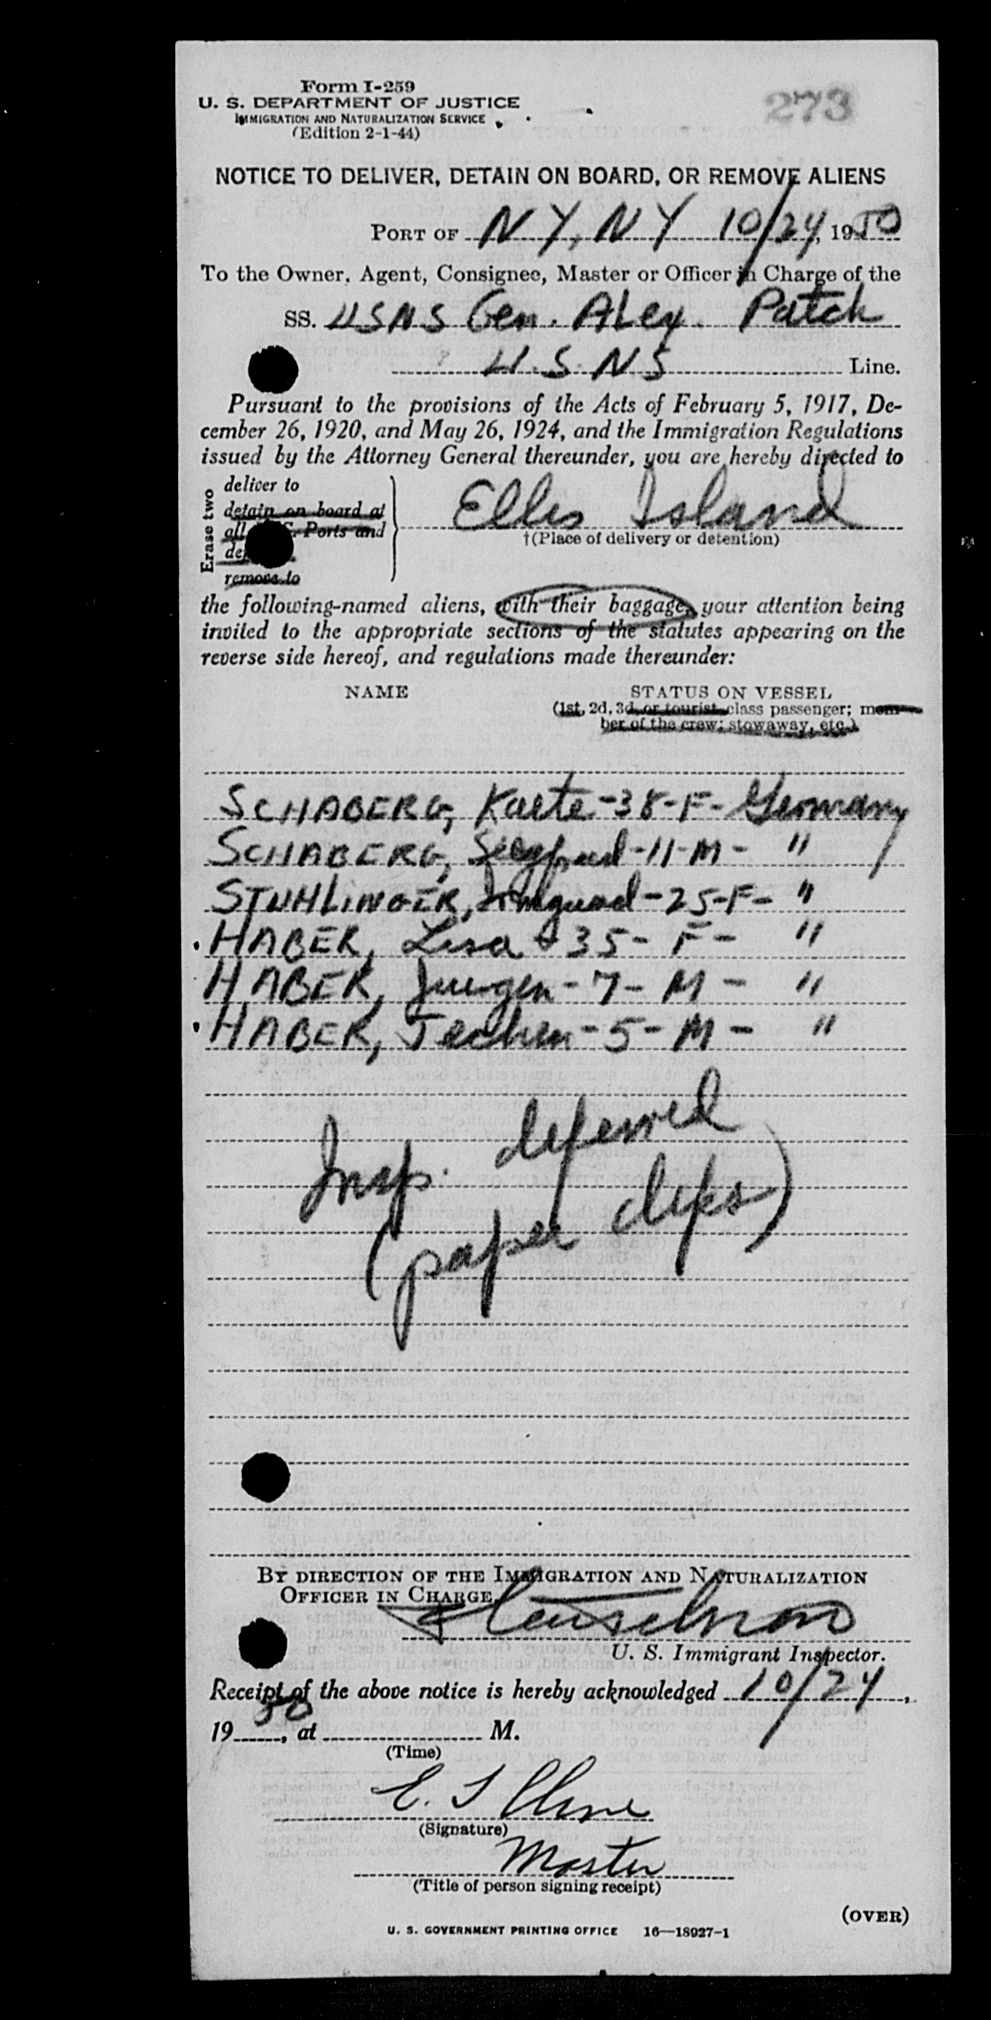 Form I-259
U. S. DEPARTMENT OF JUSTICE
IMMIGRATION AND NATURALIZATION SERVICE
(Edition 2-1-44)
273
NOTICE TO DELIVER, DETAIN ON BOARD, OR REMOVE ALIENS
PORT OF NY, NY 10/24, 1950
To the Owner, Agent, Consignee, Master or Officer in Charge of the
SS. USNS Gen. Alex. Patch
U.S.N.S Line.
Pursuant to the provisions of the Acts of February 5, 1917, De-
cember 26, 1920, and May 26, 1924, and the Immigration Regulations
issued by the Attorney General thereunder, you are hereby directed to
Erase two
deliver to
detain on board at
all Ports and
remove to
Ellis Island
†(Place of delivery or detention)
the following-named aliens, with their baggage, your attention being
invited to the appropriate sections of the statutes appearing on the
reverse side hereof, and regulations made thereunder:
NAME STATUS ON VESSEL
(1st, 2d, 3d, or tourist class passenger; mem-
ber of the crew; stowaway, etc.)
SCHABERG, Kaete - 38 - F - Germany
SCHABERG, Siegfried - 11 - M - "
STUHLINGER, Irmgard - 25 - F - "
HABER, Lisa - 35 - F - "
HABER, Juergen - 7 - M - "
HABER, Jochen - 5 - M - "
Insp. deferred
(paper clips)
BY DIRECTION OF THE IMMIGRATION AND NATURALIZATION
OFFICER IN CHARGE
U. S. Immigrant Inspector.
Receipt of the above notice is hereby acknowledged 10/24,
1950, at M.
(Time)
E. J.
(Signature)
Master
(Title of person signing receipt)
(OVER)
U. S. GOVERNMENT PRINTING OFFICE 16—18927-1